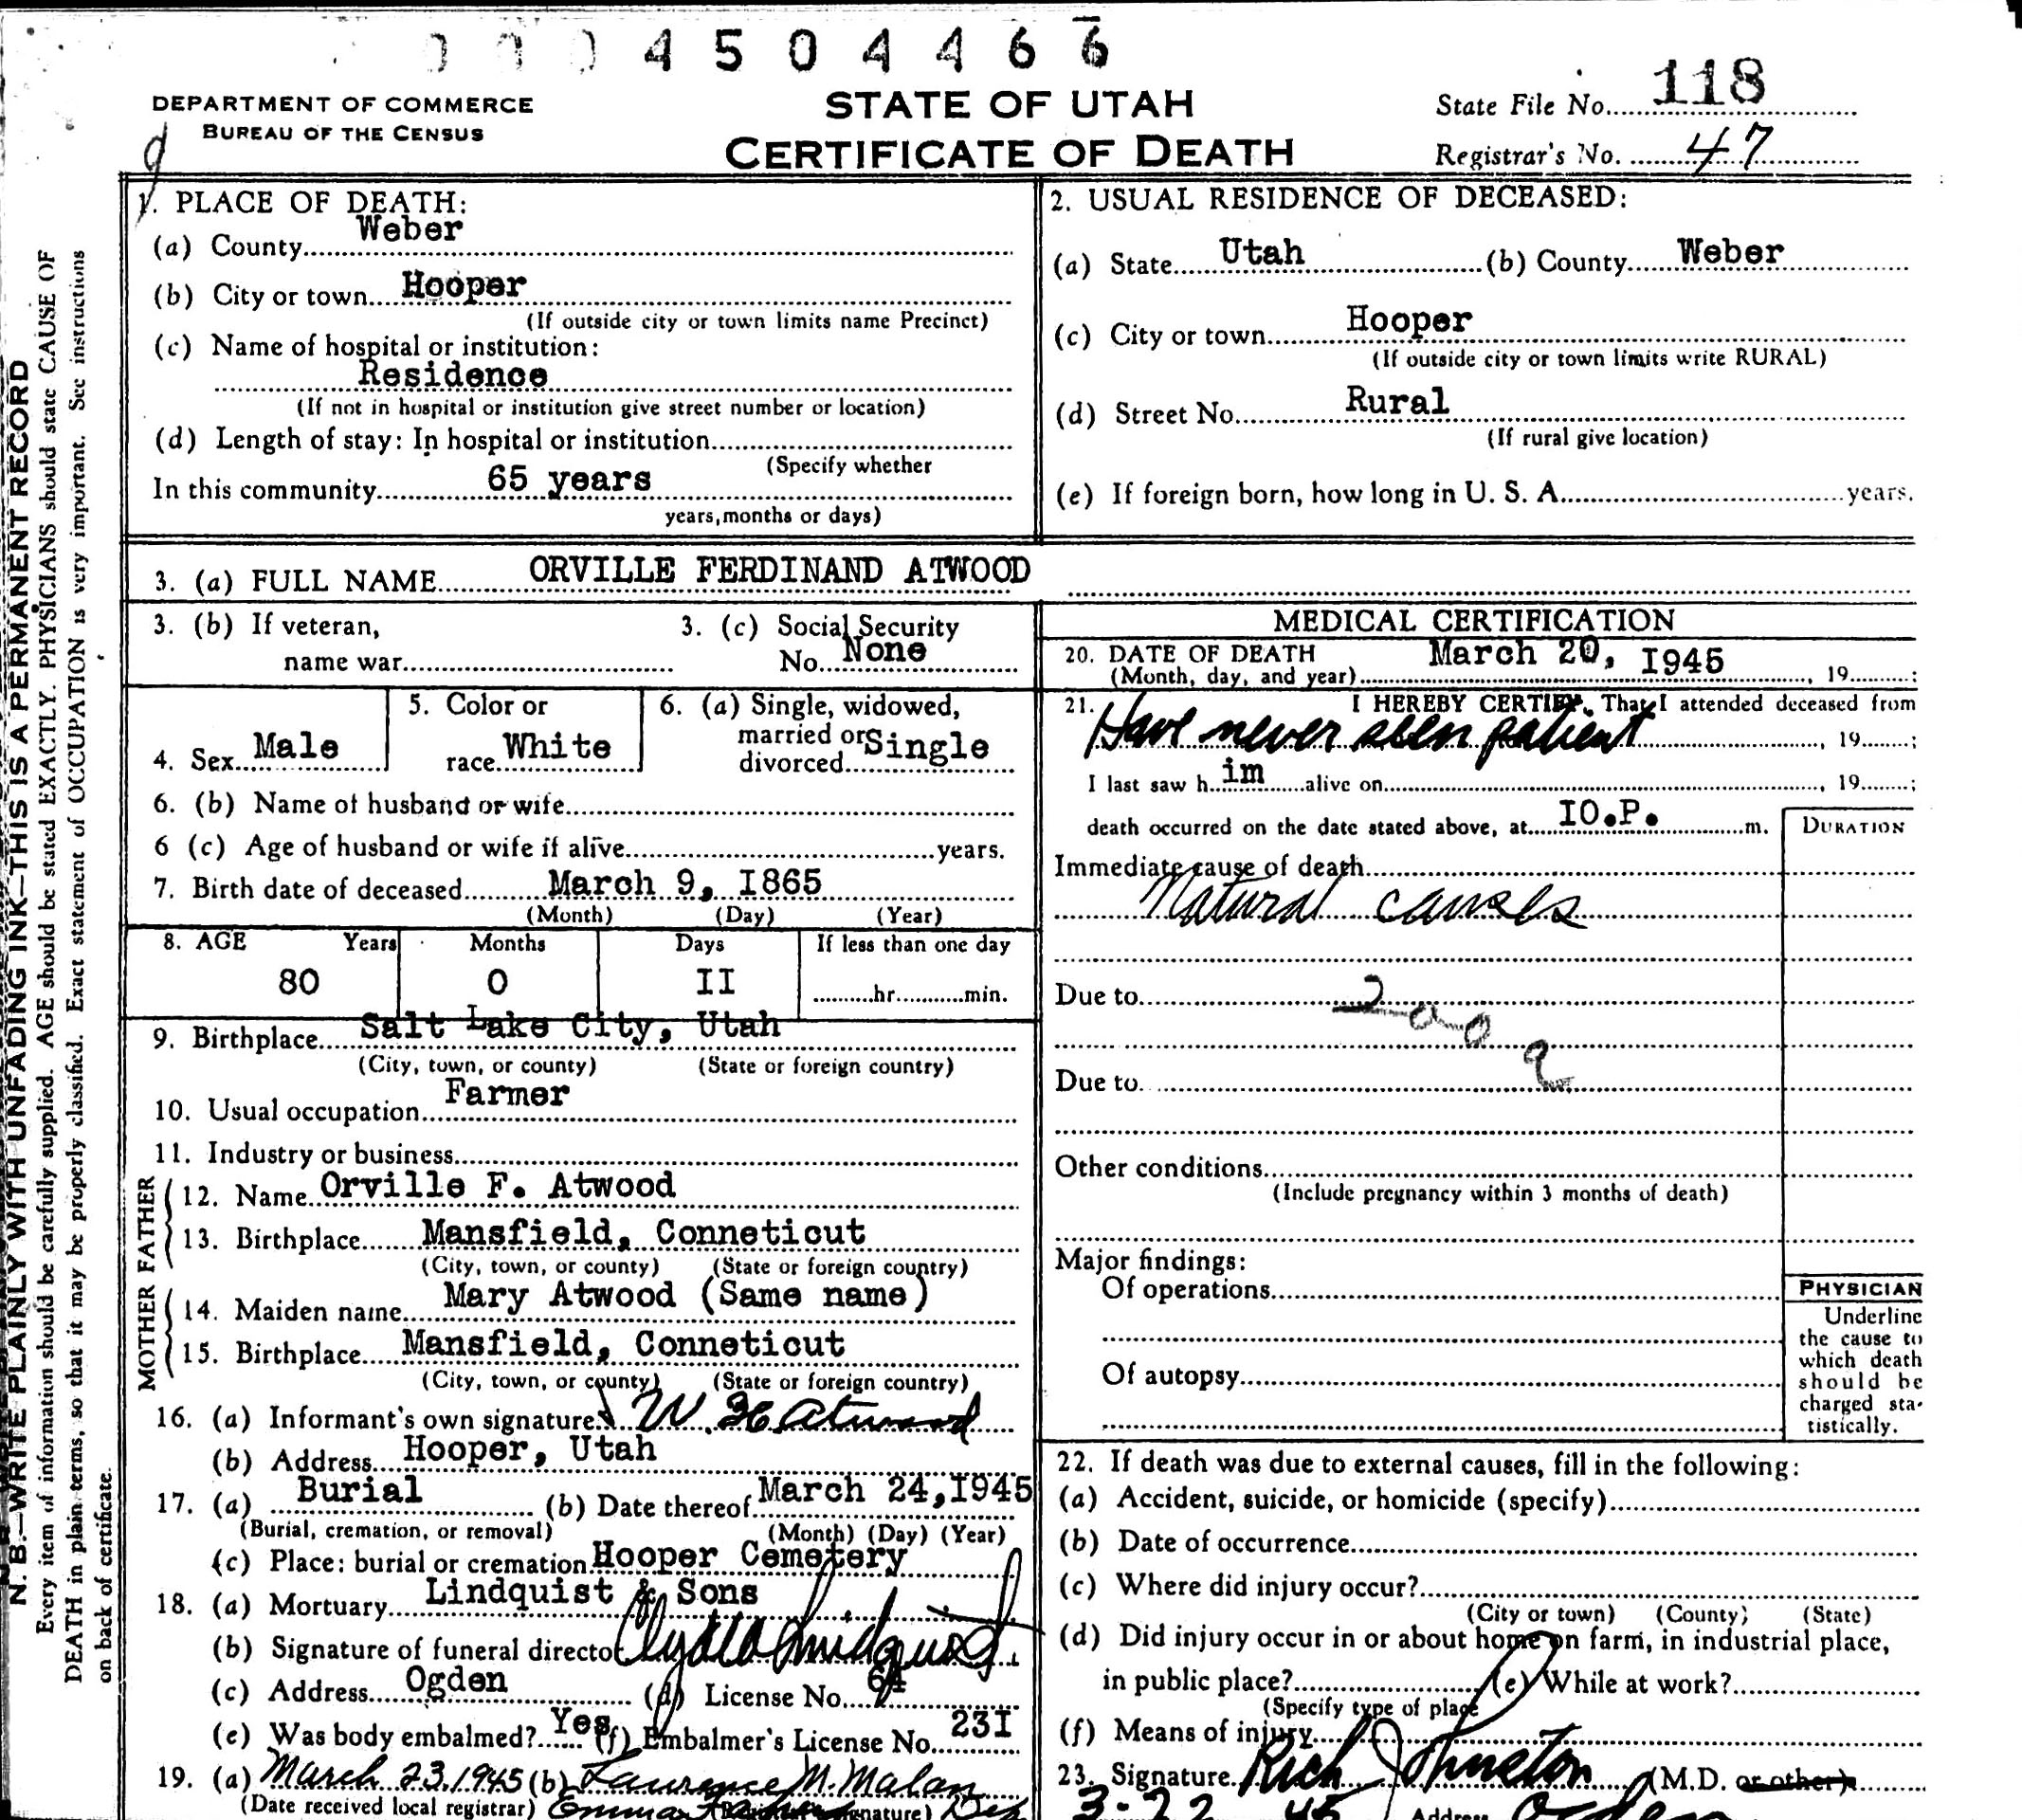 4 5 0 4 4 6 6
DEPARTMENT OF COMMERCE
BUREAU OF THE CENSUS
STATE OF UTAH
CERTIFICATE OF DEATH
State File No. 118
Registrar's No. 47
N. B.—WRITE PLAINLY WITH UNFADING INK—THIS IS A PERMANENT RECORD
Every item of information should be carefully supplied. AGE should be stated EXACTLY. PHYSICIANS should state CAUSE OF
DEATH in plain terms, so that it may be properly classified. Exact statement of OCCUPATION is very important. See instructions
on back of certificate.
1. PLACE OF DEATH:
(a) County Weber
(b) City or town Hooper
(If outside city or town limits name Precinct)
(c) Name of hospital or institution:
Residence
(If not in hospital or institution give street number or location)
(d) Length of stay: In hospital or institution
(Specify whether
In this community 65 years
years, months or days)
2. USUAL RESIDENCE OF DECEASED:
(a) State Utah (b) County Weber
(c) City or town Hooper
(If outside city or town limits write RURAL)
(d) Street No. Rural
(If rural give location)
(e) If foreign born, how long in U. S. A. years.
3. (a) FULL NAME ORVILLE FERDINAND ATWOOD
3. (b) If veteran,
name war
3. (c) Social Security
No. None
4. Sex Male
5. Color or
race White
6. (a) Single, widowed,
married or
divorced Single
6. (b) Name of husband or wife
6 (c) Age of husband or wife if alive years.
7. Birth date of deceased March 9, I865
(Month) (Day) (Year)
8. AGE Years Months Days If less than one day
80 0 II hr. min.
9. Birthplace Salt Lake City, Utah
(City, town, or county) (State or foreign country)
10. Usual occupation Farmer
11. Industry or business
FATHER
12. Name Orville F. Atwood
13. Birthplace Mansfield, Conneticut
(City, town, or county) (State or foreign country)
MOTHER
14. Maiden name Mary Atwood (Same name)
15. Birthplace Mansfield, Conneticut
(City, town, or county) (State or foreign country)
16. (a) Informant's own signature W. H. Atwood
(b) Address Hooper, Utah
17. (a) Burial (b) Date thereof March 24, I945
(Burial, cremation, or removal) (Month) (Day) (Year)
(c) Place: burial or cremation Hooper Cemetery
18. (a) Mortuary Lindquist & Sons
(b) Signature of funeral director Lindquist
(c) Address Ogden (d) License No. 64
(e) Was body embalmed? Yes (f) Embalmer's License No. 23I
19. (a) March 23, 1945 (b) Laurence M. Malan
(Date received local registrar)
MEDICAL CERTIFICATION
20. DATE OF DEATH March 20, I945
(Month, day, and year) , 19 ;
21. I HEREBY CERTIFY, That I attended deceased from
Have never seen patient , 19 ;
I last saw h im alive on , 19 ;
death occurred on the date stated above, at IO.P. m.
DURATION
Immediate cause of death
Natural causes
Due to
Due to
Other conditions
(Include pregnancy within 3 months of death)
Major findings:
Of operations
Of autopsy
PHYSICIAN
Underline
the cause to
which death
should be
charged sta-
tistically.
22. If death was due to external causes, fill in the following:
(a) Accident, suicide, or homicide (specify)
(b) Date of occurrence
(c) Where did injury occur?
(City or town) (County) (State)
(d) Did injury occur in or about home on farm, in industrial place,
in public place? (e) While at work?
(Specify type of place
(f) Means of injury
23. Signature Rich Johnston (M.D. or other)
3-22-45 Address Ogden